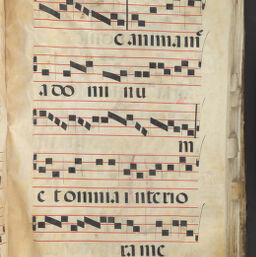 c anima m
a do mi nu
m
e t omnia i nterio
ra me